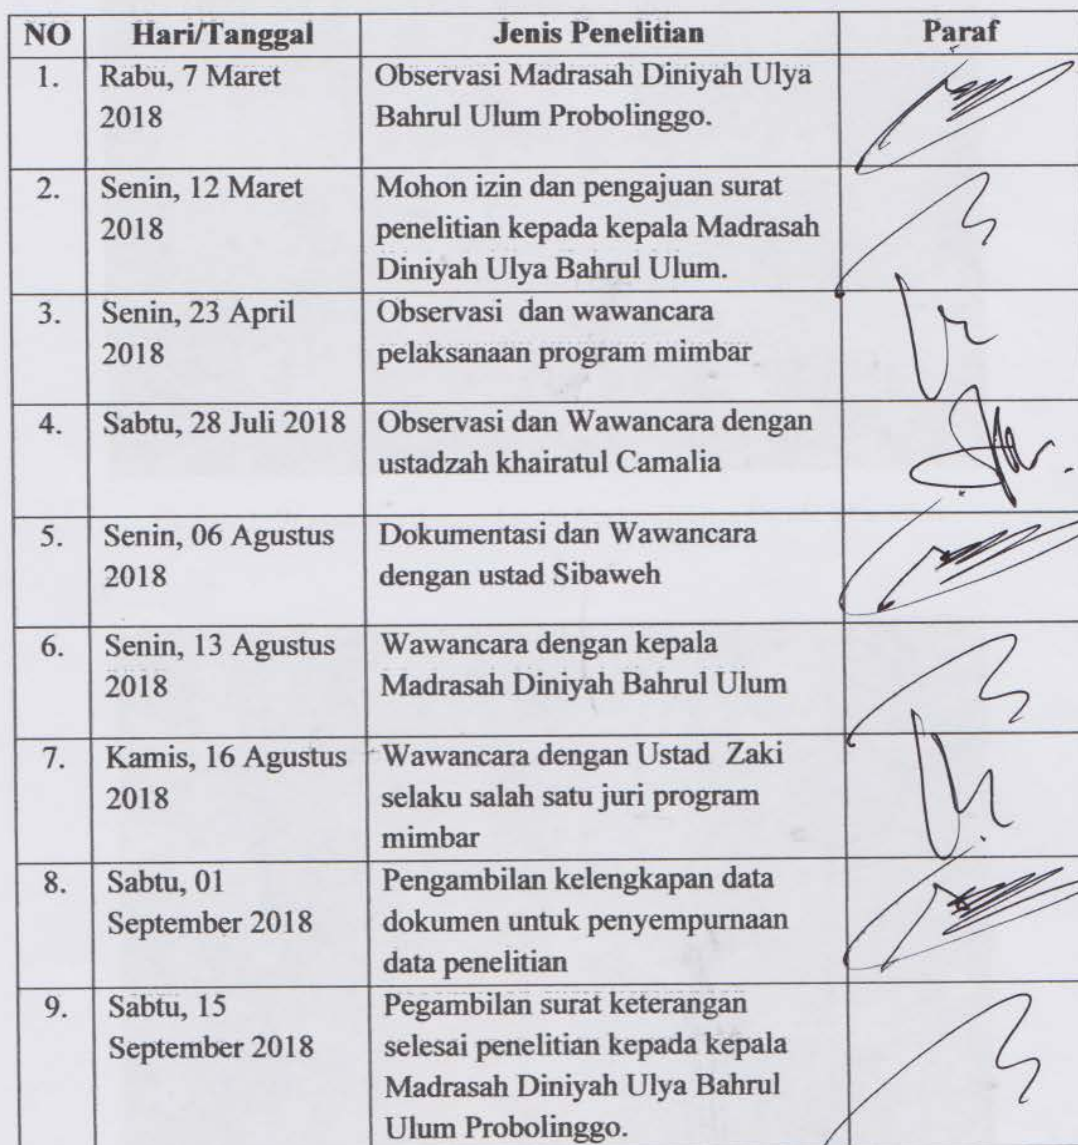 NO Hari/Tanggal Jenis Penelitian Paraf
1. Rabu, 7 Maret Observasi Madrasah Diniyah Ulya
2018 Bahrul Ulum Probolinggo.
2. Senin, 12 Maret Mohon izin dan pengajuan surat
2018 penelitian kepada kepala Madrasah
Diniyah Ulya Bahrul Ulum.
3. Senin, 23 April Observasi dan wawancara
2018 pelaksanaan program mimbar
4. Sabtu, 28 Juli 2018 Observasi dan Wawancara dengan
ustadzah khairatul Camalia
5. Senin, 06 Agustus Dokumentasi dan Wawancara
2018 dengan ustad Sibaweh
6. Senin, 13 Agustus Wawancara dengan kepala
2018 Madrasah Diniyah Bahrul Ulum
7. Kamis, 16 Agustus Wawancara dengan Ustad Zaki
2018 selaku salah satu juri program
mimbar
8. Sabtu, 01 Pengambilan kelengkapan data
September 2018 dokumen untuk penyempurnaan
data penelitian
9. Sabtu, 15 Pegambilan surat keterangan
September 2018 selesai penelitian kepada kepala
Madrasah Diniyah Ulya Bahrul
Ulum Probolinggo.